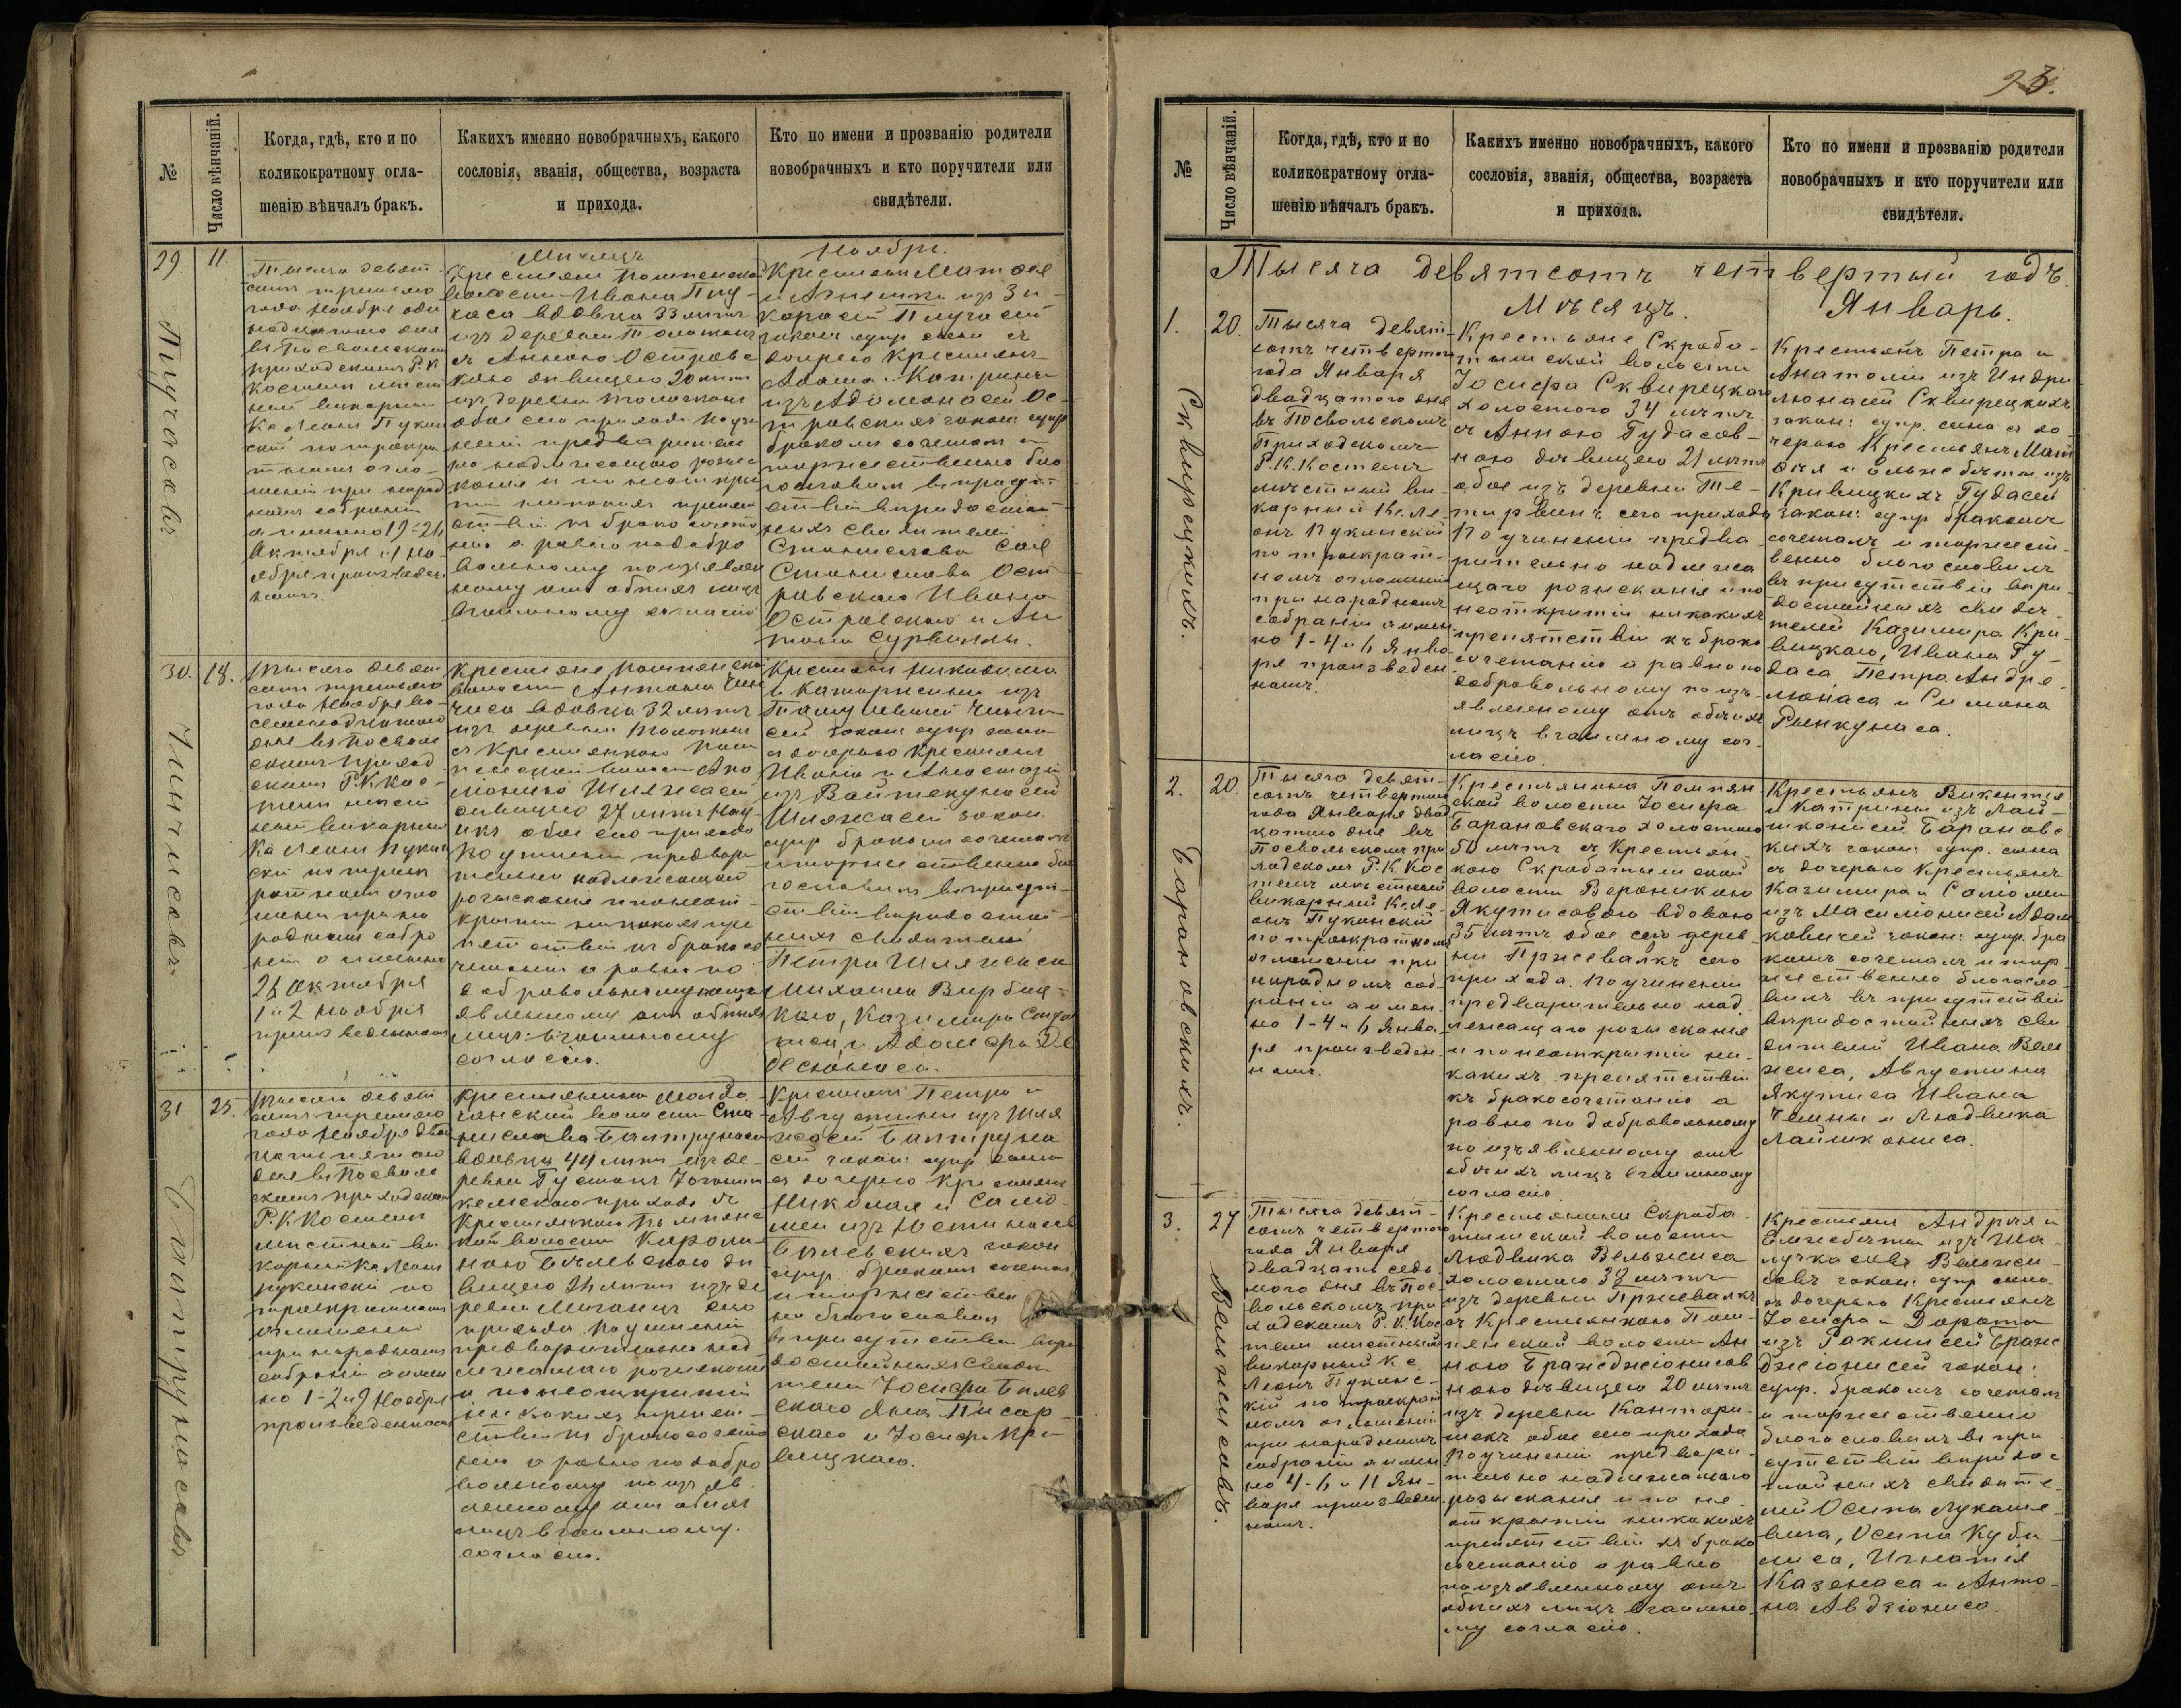 №
Число вѣнчаній.
Когда, гдѣ, кто и по
коликократному огла-
шенію вѣнчалъ бракъ.
Какихъ именно новобрачныхъ, какого
сословія, званія, общества, возраста
и прихода.
Кто по имени и прозванію родители
новобрачныхъ и кто поручители или
свидѣтели.
29
11.
Мѣсяцъ
Ноябрь.
Тысяча девят-
сотъ третьяго
года Ноября оди
надцатаго дня
въ Посвольскомъ
приходскомъ Р.К.
костелѣ мѣст
ный викарный
Кс. Леонъ Пукин
скій по троекра
тномъ огла-
шеніи при народ
номъ собраніи
а именно 19-26
Октября и 1 Но
ября произведен
номъ.
Крестьяне Помпянской
волости Ивана Пу-
часа вдовца 33 лѣтъ
изъ деревни
съ Анною Островс
кою дѣвицею 20 лѣтъ
изъ деревни
обое сего прихода. По учи
неніи предварительно
надлежащаго розыс
канія и по неоткры
тіи никакихъ препят
ствій къ бракосочета
нію а равно по добро
вольному по изъявлен
ному отъ обѣихъ лицъ
взаимному согласію
Крестьянъ Матвѣя
и Агнешки изъ Зи-
законн: супр. сына съ
дочерью Крестьянъ
Адама и Катрины
изъ Адомонисей Ос-
тровскихъ закон: супр
бракомъ сочеталъ и
торжественно бла
гословилъ въ присут
ствіи вѣродостой
ныхъ свидѣтелей
Станислава
Станислава Ост
ровскаго Ивана
Островскаго и Ан
тона Сурвиллы.
30.
18.
Тысяча девят
сотъ третьяго
года Ноября во-
семнадцатаго
дня въ Посволь
скомъ приход
скомъ Р.К. Кос-
телѣ мѣст
ный викарный
Кс Леонъ Пукин
скій по троек
ратномъ огла
шеніи при на
родномъ собра
ніи а именно
26 Октября
1 и 2 Ноября
произведенномъ
Крестьяне Помпянской
волости Антона Чин
чиса вдовца 32 лѣтъ
изъ деревни
съ крестьянкою Пом
пянской волости Апо
лоніею Шляжасей
дѣвицею 27 лѣтъ
обое сего прихода
По учиненіи предвари
тельно надлежащаго
розысканія и по неот
крытіи никакихъ пре
пятствій къ бракосо
четанію а равно по
добровольному по изъ
явленному отъ обѣихъ
лицъ взаимному
согласію.
Крестьянъ Никодима
и Катаржины изъ
Чинчи
сей закон: супр сына
съ дочерью крестьянъ
Ивана и Анастазіи
изъ Войтекунасей
Шляжасей закон.
супр бракомъ сочеталъ
и торжественно бла
гословилъ въ присут-
ствіи вѣродостой-
ныхъ свидѣтелей
Петра Шляжаса
Михаила Вирбиц-
каго, Казимира
и Адама
31
25.
Тысяча девят
сотъ третьяго
года Ноября два
дцать пятаго
дня въ Посволь
скомъ приходском
Р.К Костелѣ
мѣстный ви
карный Кс Леонъ
Пукинскій по
троекратномъ
оглашеніи
при народномъ
собраніи а имен
но 1-2 и 9 Ноября
произведенномъ
Крестьянина
волости Ста
нислава Балтрунаса
вдовца 44 лѣтъ изъ де
ревни
прихода съ
Крестьянкою Помпянс
кой волости Кароли-
ною Бялевскою дѣ
вицею лѣтъ изъ де
ревни сего
прихода. По учиненіи
предварительно над
лежащаго розысканія
и по неоткрытіи
никакихъ препят-
ствій къ бракосочета
нію а равно по добро
вольному по изъяв
ленному отъ обѣихъ
лицъ взаимному.
согласію.
Крестьянъ Петра и
Августины изъ Шля
жасей Балтруна
сей закон: супр сына
съ дочерью Крестьянъ
Николая и Сало-
меи изъ
Бялевскихъ закон
супр. бракомъ сочетал
и торжествен
но благословилъ
въ присутствіи вѣро
достойныхъ свидѣ
телей Іосифа Бялев
скаго Яна Писар-
скаго и Іосифа Кри
вицкаго.
Пучасовъ
Чинчисовъ
Балтрунасовъ
23.
№
Число вѣнчаній.
Когда, гдѣ, кто и по
коликократному огла-
шенію вѣнчалъ бракъ.
Какихъ именно новобрачныхъ, какого
сословія, званія, общества, возраста
и прихода.
Кто по имени и прозванію родители
новобрачныхъ и кто поручители или
свидѣтели.
Тысяча девятсотъ четвертый годъ.
Мѣсяцъ. Январь.
1.
20.
Сквирецкихъ.
Тысяча девят-
сотъ четвертаго
года Января
двадцатого дня
въ Посвольскомъ
Приходскомъ
Р.К. Костелѣ
мѣстный ви-
карный Кс. Ле-
онъ Пукинскій
по троекрат-
номъ оглашеніи
при народномъ
собраніи а имен
но 1-4 и 6 Янва
ря произведен
номъ.
Крестьяне Скроба-
тышской волости
Іосифа Сквирецкаго
холостого 34 лѣтъ
съ Анною Гудасов-
ною дѣвицею 21 лѣтъ
обое изъ деревни Те-
тирвинъ сего прихода
По учиненіи предва
рительно надлежа
щаго розысканія и по
неоткрытіи никакихъ
препятствій къ брако
сочетанію а равно по
добровольному по изъ-
явленному отъ обѣихъ
лицъ взаимному сог-
ласію.
Крестьянъ Петра и
Анатоліи изъ Индри
люнасей Сквирецкихъ
закон: супр. сына съ до-
черью Крестьянъ Мат
вѣя и Эльжбѣты изъ
Кривицкихъ Гудасей
закон: супр бракомъ
сочеталъ и торжест-
венно благословилъ
въ присутствіи вѣро
достойныхъ свидѣ-
телей Казимира Кри-
вицкаго, Ивана Гу-
даса Петра Андре
люнаса и Симона
Рынкунаса.
2.
20.
Барановскихъ.
Тысяча девят-
сотъ четвертаго
года Января двад
цатаго дня въ
Посвольскомъ при
ходскомъ Р.К. Кос
телѣ мѣстный
викарный Кс. Ле-
онъ Пукинскій
по троекратномъ
оглашеніи при
народномъ соб-
раніи а имен-
но 1-4 и 6 Янва-
ря произведен-
номъ.
Крестьянина Помпян
ской волости Іосифа
Барановскаго холостого
лѣтъ съ Крестьян-
кою Скробатышской
волости Вероникою
Якутисовою вдовою
35 лѣтъ обое сего дерев-
ни Пржевалкъ сего
прихода. По учиненіи
предварительно над-
лежащаго розысканія
и по неоткрытіи ни-
какихъ препятствій
къ бракосочетанію а
равно по добровольному
по изъявленному отъ
обѣихъ лицъ взаимному
согласію
Крестьянъ Викентія
и Катрины изъ Лай-
шконисей Барановс-
кихъ закон: супр. сына
съ дочерью Крестьянъ
Казимира и Саломеи
изъ Масилюнисей Адам
ковичей закон: супр. бра
комъ сочеталъ и тор-
жественно благосло-
вилъ въ присутствіи
вѣродостойныхъ сви-
дѣтелей Ивана Вель
жиса, Августина
Якутиса Ивана
и Людвика
Лайшкониса.
3.
27
Вельжисовъ.
Тысяча девят-
сотъ четвертого
года Января
двадцать седь-
мого дня въ Пос-
вольскомъ при
ходскомъ Р.К. Кос
телѣ мѣстный
викарный Кс.
Леонъ Пукинс-
кій по троекрат
номъ оглашеніи
при народномъ
собраніи а имен
но 4-6 и 11 Ян-
варя произведен-
номъ.
Крестьянина Скроба-
тышской волости
Людвика Вельжиса
холостаго 38 лѣтъ
изъ деревни Пржевалкъ
съ Крестьянкою Пом-
пянской волости Ан
ною Бражджюнисов
ною дѣвицею 20 лѣтъ
изъ деревни Кантари-
шекъ обое сего прихода
По учиненіи предвари-
тельно надлежащаго
розысканія и по не
открытіи никакихъ
препятствій къ брако
сочетанію а равно
по изъявленному отъ
обѣихъ лицъ взаимно
му согласію.
Крестьянъ Андрея и
Эльжбѣты изъ Ша-
Вельжи-
совъ закон: супр сына
съ дочерью Крестьянъ
Іосифа и Дороты
изъ Ракшисей Браж
джюнисей закон:
супр. бракомъ сочеталъ
и торжественно
благословилъ въ при
сутствіи вѣродос
тойныхъ свидѣте
лей Осипа Лукаше-
вича, Осипа Куби-
лиса, Игнатія
Казенаса и Анто-
на Авдзюниса.